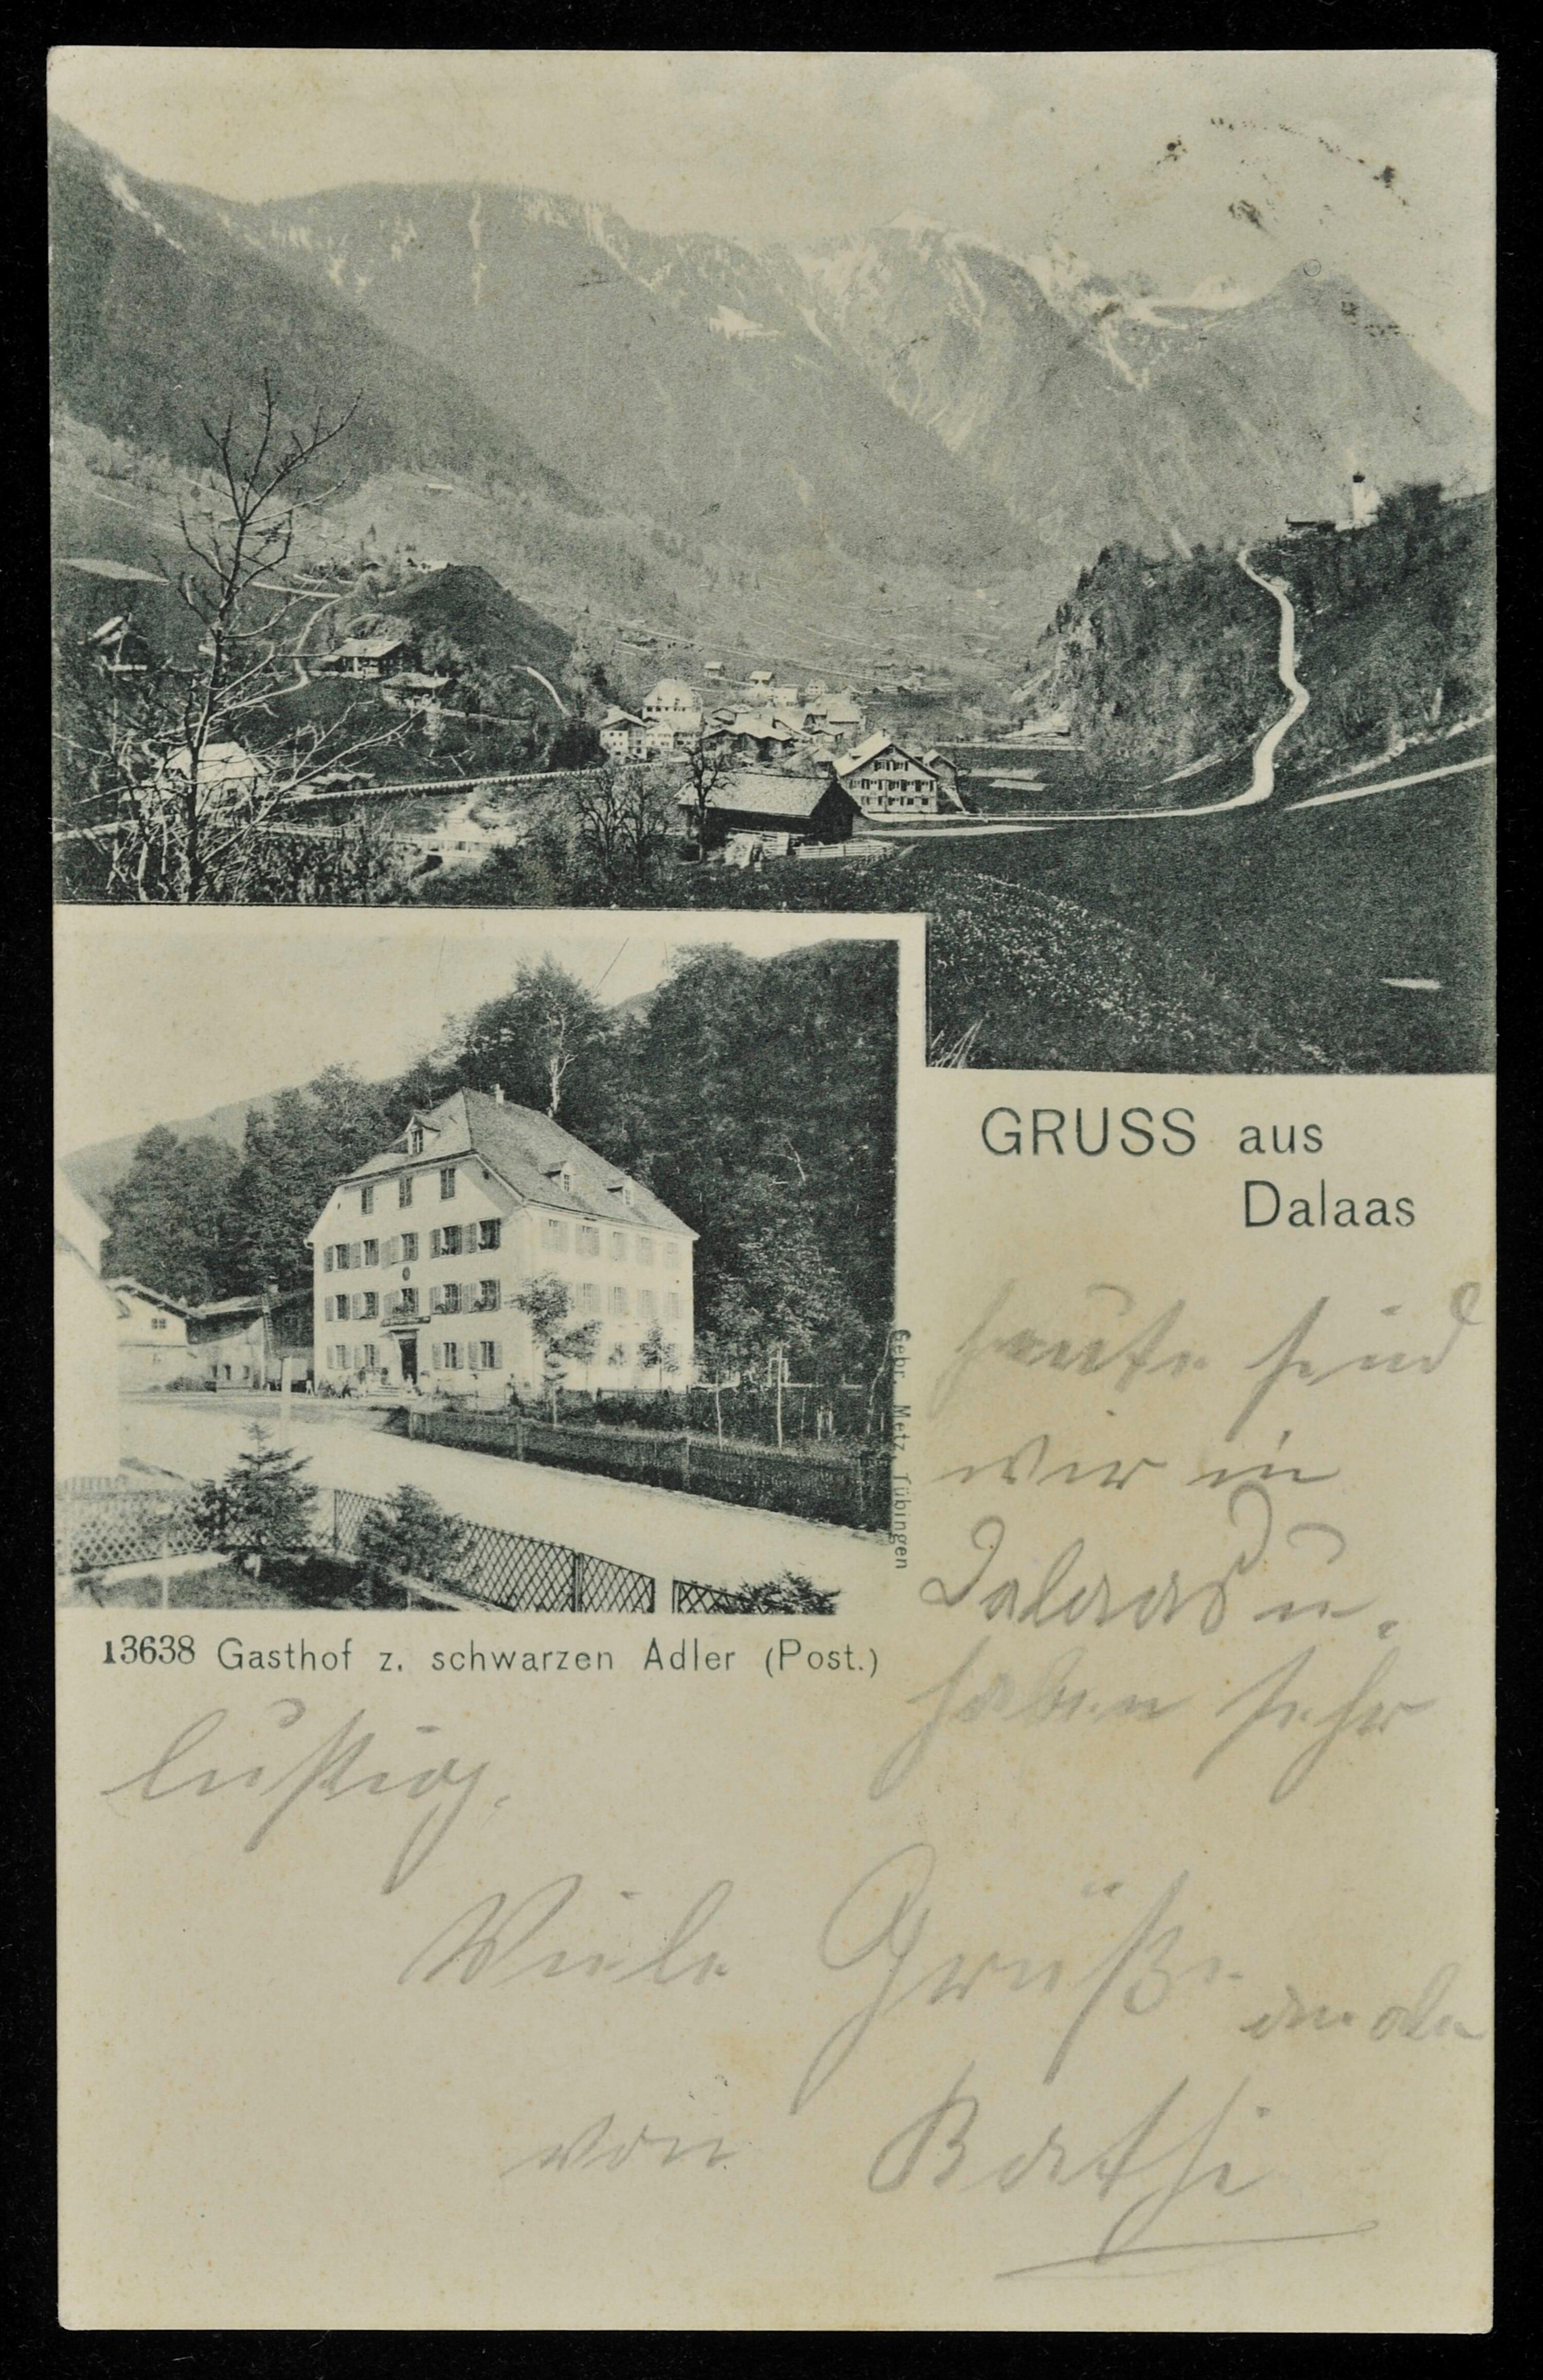 GRUSS aus
Dalaas
Gebr. Metz, Tübingen
13638 Gasthof z. schwarzen Adler (Post.)
heute sind
wir in
Dalaas u.
haben sehr
lustig.
Viele Grüße
von Kathi